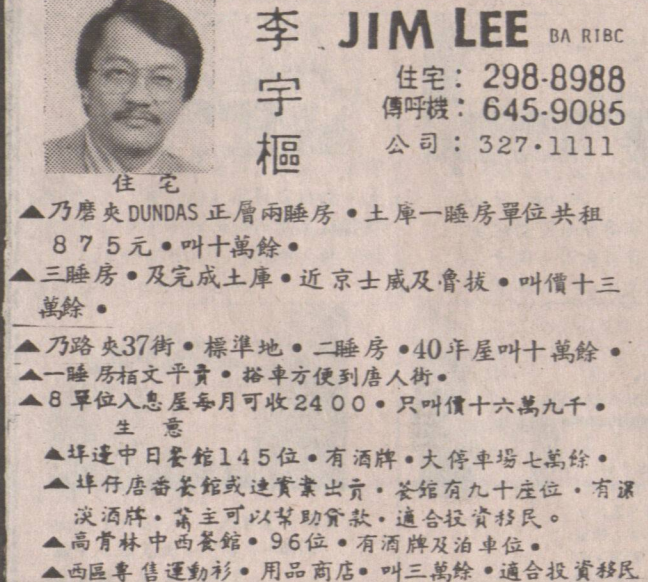 李宇樞
JIM LEE BA RIBC
住宅：298-8988
傳呼機：645-9085
公司：327·1111
住宅
▲乃磨夾DUNDAS正層兩睡房•土庫一睡房單位共租
875元•叫十萬餘•
▲三睡房•及完成土庫•近京士威及魯拔•叫價十三
萬餘•
▲乃路夾37街•標準地•二睡房•40年屋叫十萬餘•
▲一睡房栢文平賣•搭車方便到唐人街•
▲8單位入息屋每月可收2400•只叫價十六萬九千•
生意
▲埠邊中日餐館145位•有酒牌•大停車場七萬餘•
▲埠仔唐番餐館或連實業出賣•餐館有九十座位•有濃
淡酒牌•舊主可以幫助貸款•適合投資移民。
▲高貴林中西餐館•96位•有酒牌及泊車位•
▲西區專售運動衫•用品商店•叫三萬餘•適合投資移民